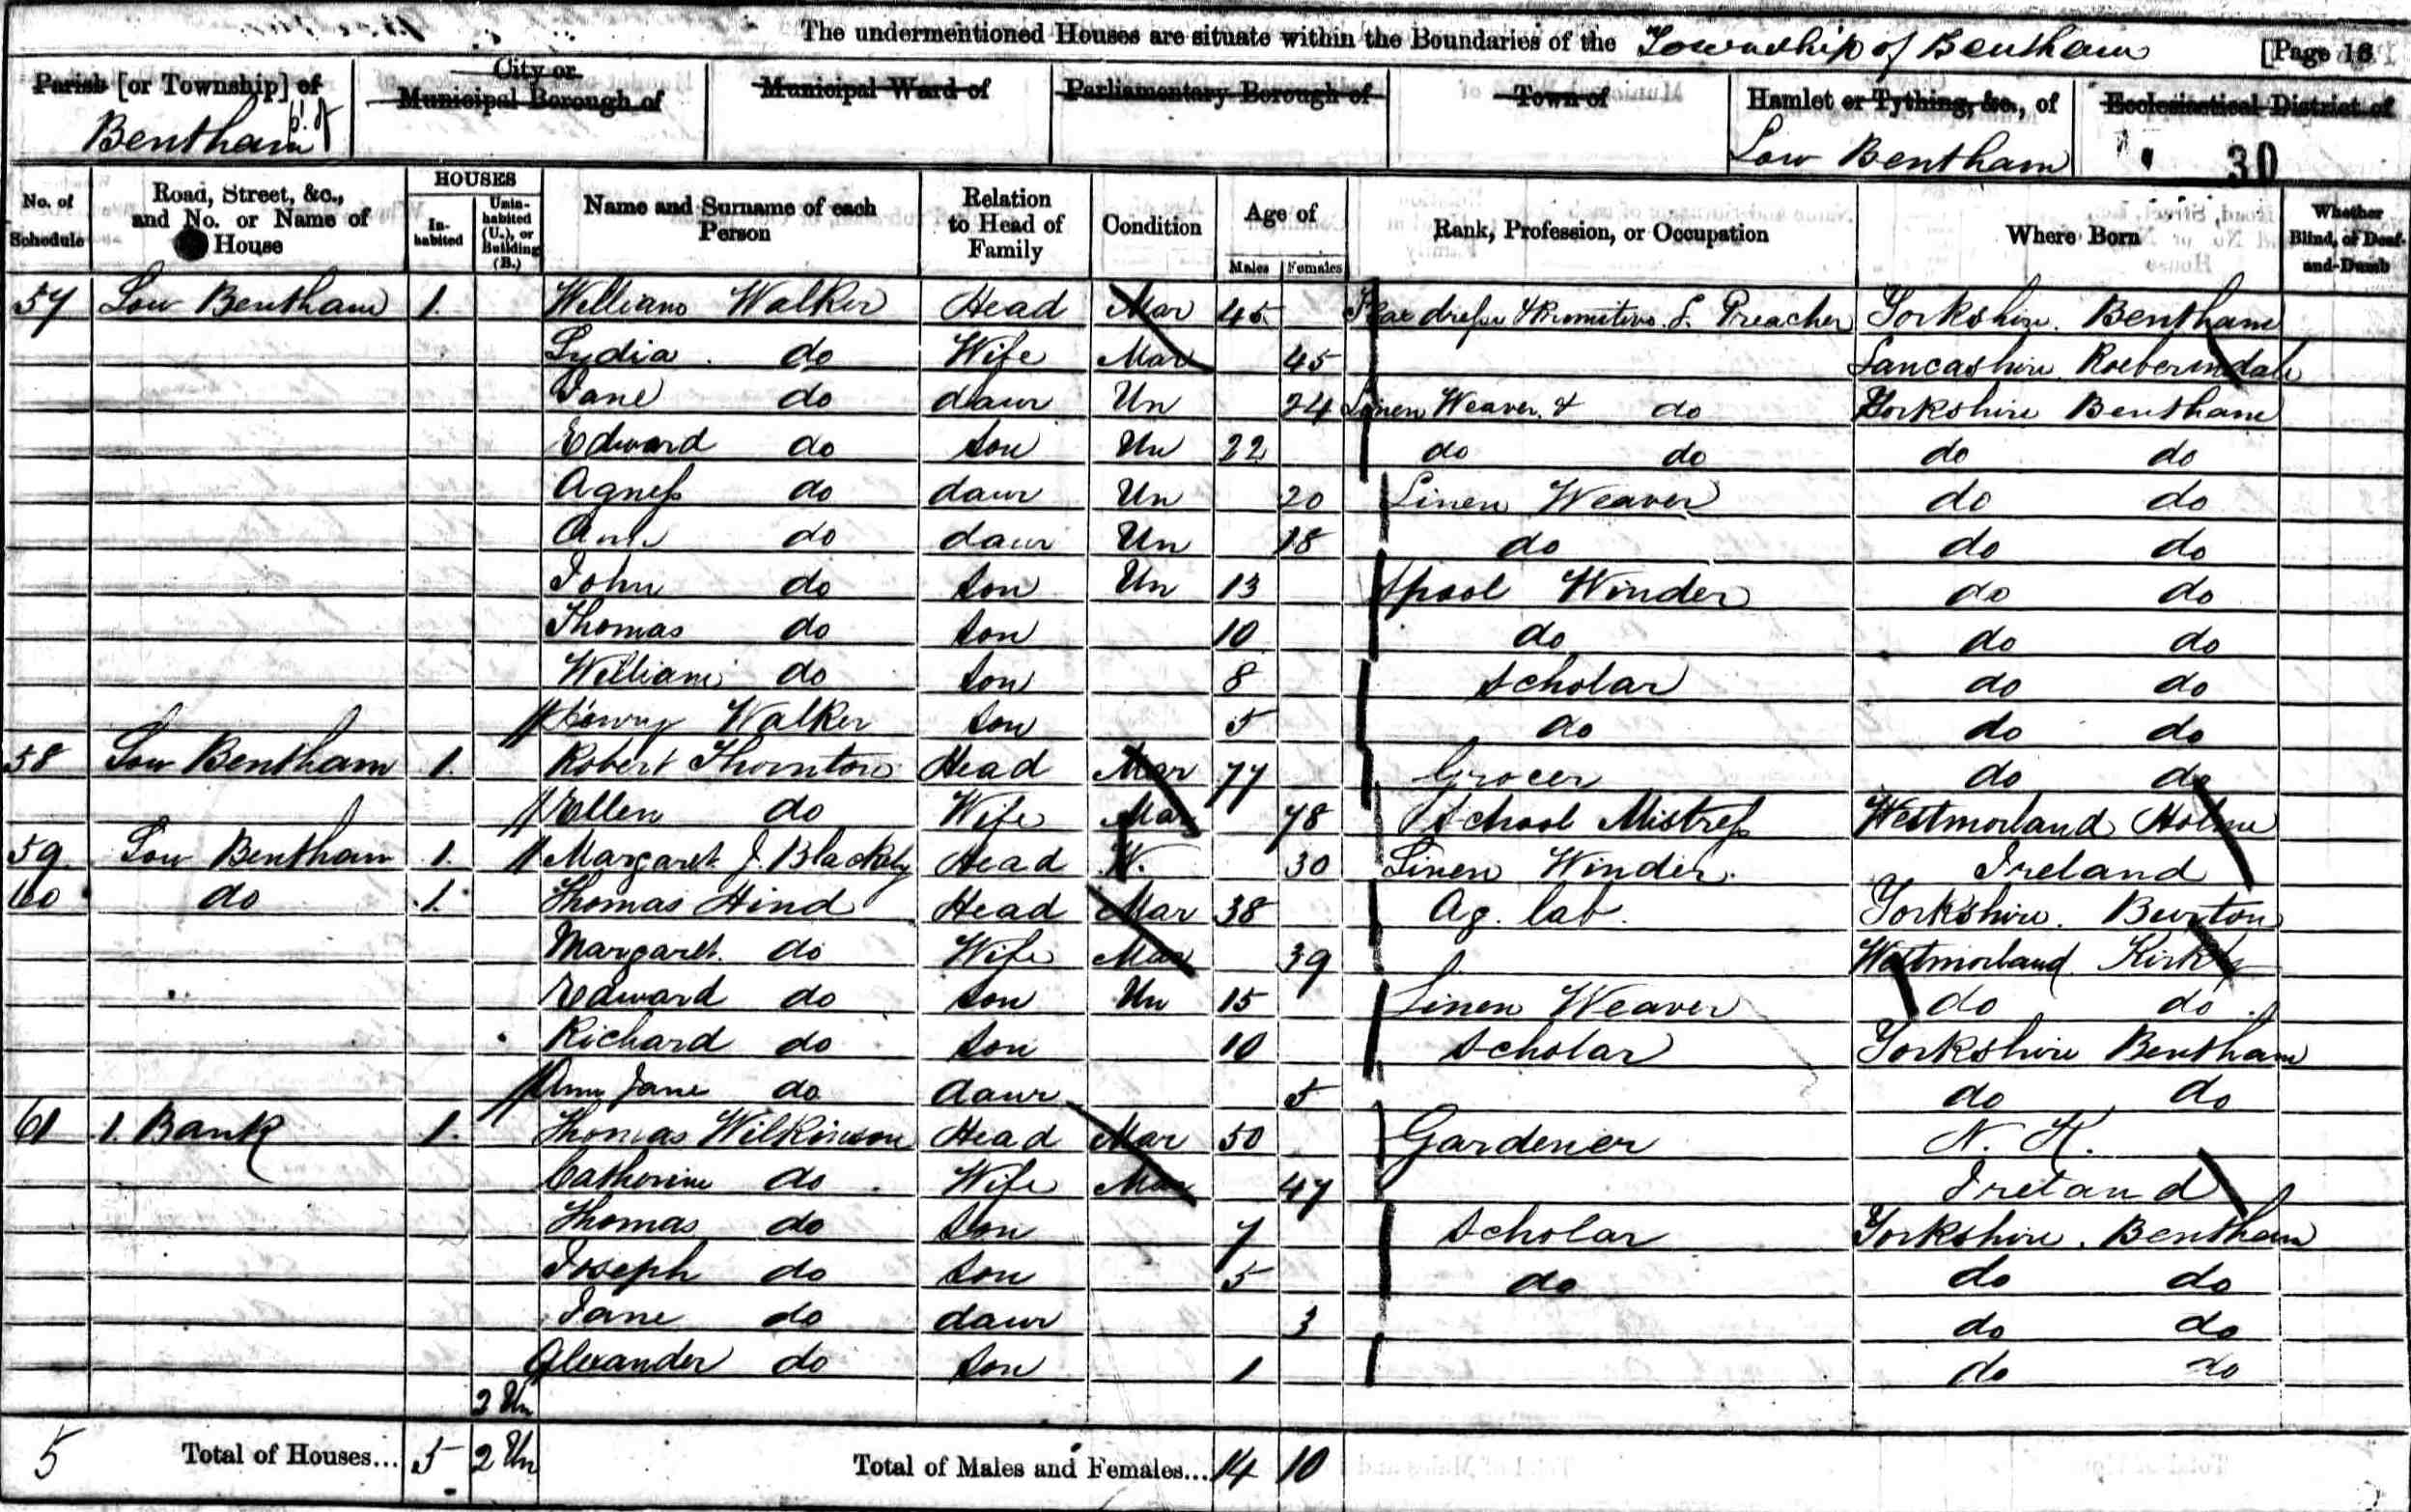 The undermentioned Houses are situate within the Boundaries of the Township of Bentham [Page 16
Parish [or Township] of Bentham pt of
City or Municipal Borough of
Municipal Ward of
Parliamentary Borough of
Town of
Hamlet or Tything, &c., of Low Bentham
Ecclesiastical District of
30
No. of Schedule
Road, Street, &c., and No. or Name of House
HOUSES
In-habited
Unin-habited (U.), or Building (B.)
Name and Surname of each Person
Relation to Head of Family
Condition
Age of
Males
Females
Rank, Profession, or Occupation
Where Born
Whether Blind, or Deaf-and-Dumb
57 Low Bentham 1 William Walker Head Mar 45 Flax dresser & Primitive L. Preacher Yorkshire Bentham
Lydia do Wife Mar 45 Lancashire Roeberindale
Jane do daur Un 24 Linen Weaver & do Yorkshire Bentham
Edward do Son Un 22 do do do do
Agness do daur Un 20 Linen Weaver do do
Ann do daur Un 18 do do do
John do Son Un 13 Spool Winder do do
Thomas do Son 10 do do do
William do Son 8 Scholar do do
Henry Walker Son 5 do do do
58 Low Bentham 1 Robert Thornton Head Mar 77 Grocer do do
Ellen do Wife Mar 78 School Mistress Westmorland Holme
59 Low Bentham 1 Margaret J. Head W. 30 Linen Winder Ireland
60 do 1 Thomas Hind Head Mar 38 Ag. lab. Yorkshire Burton
Margaret do Wife Mar 39 Westmorland
Edward do Son Un 15 Linen Weaver do do
Richard do Son 10 Scholar Yorkshire Bentham
Ann Jane do daur 5 do do
61 1. Bank 1 Thomas Wilkinson Head Mar 50 Gardener N. K.
Catherine do Wife Mar 47 Ireland
Thomas do Son 7 Scholar Yorkshire Bentham
Joseph do Son 5 do do do
Jane do daur 3 do do
Alexander do Son 1 do do
2 Un
5 Total of Houses... 5 2 Un Total of Males and Females... 14 10